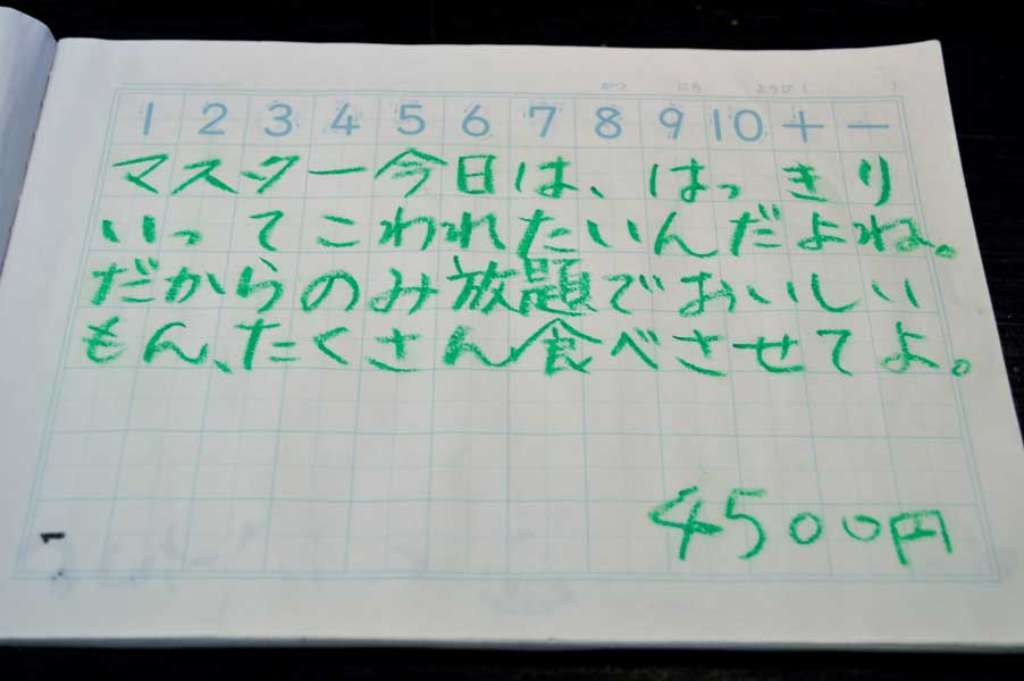 1 2 3 4 5 6 7 8 9 10 + −
マスター今日は、はっきり
いってこわれたいんだよね。
だからのみ放題でおいしい
もん、たくさん食べさせてよ。
4500円
1